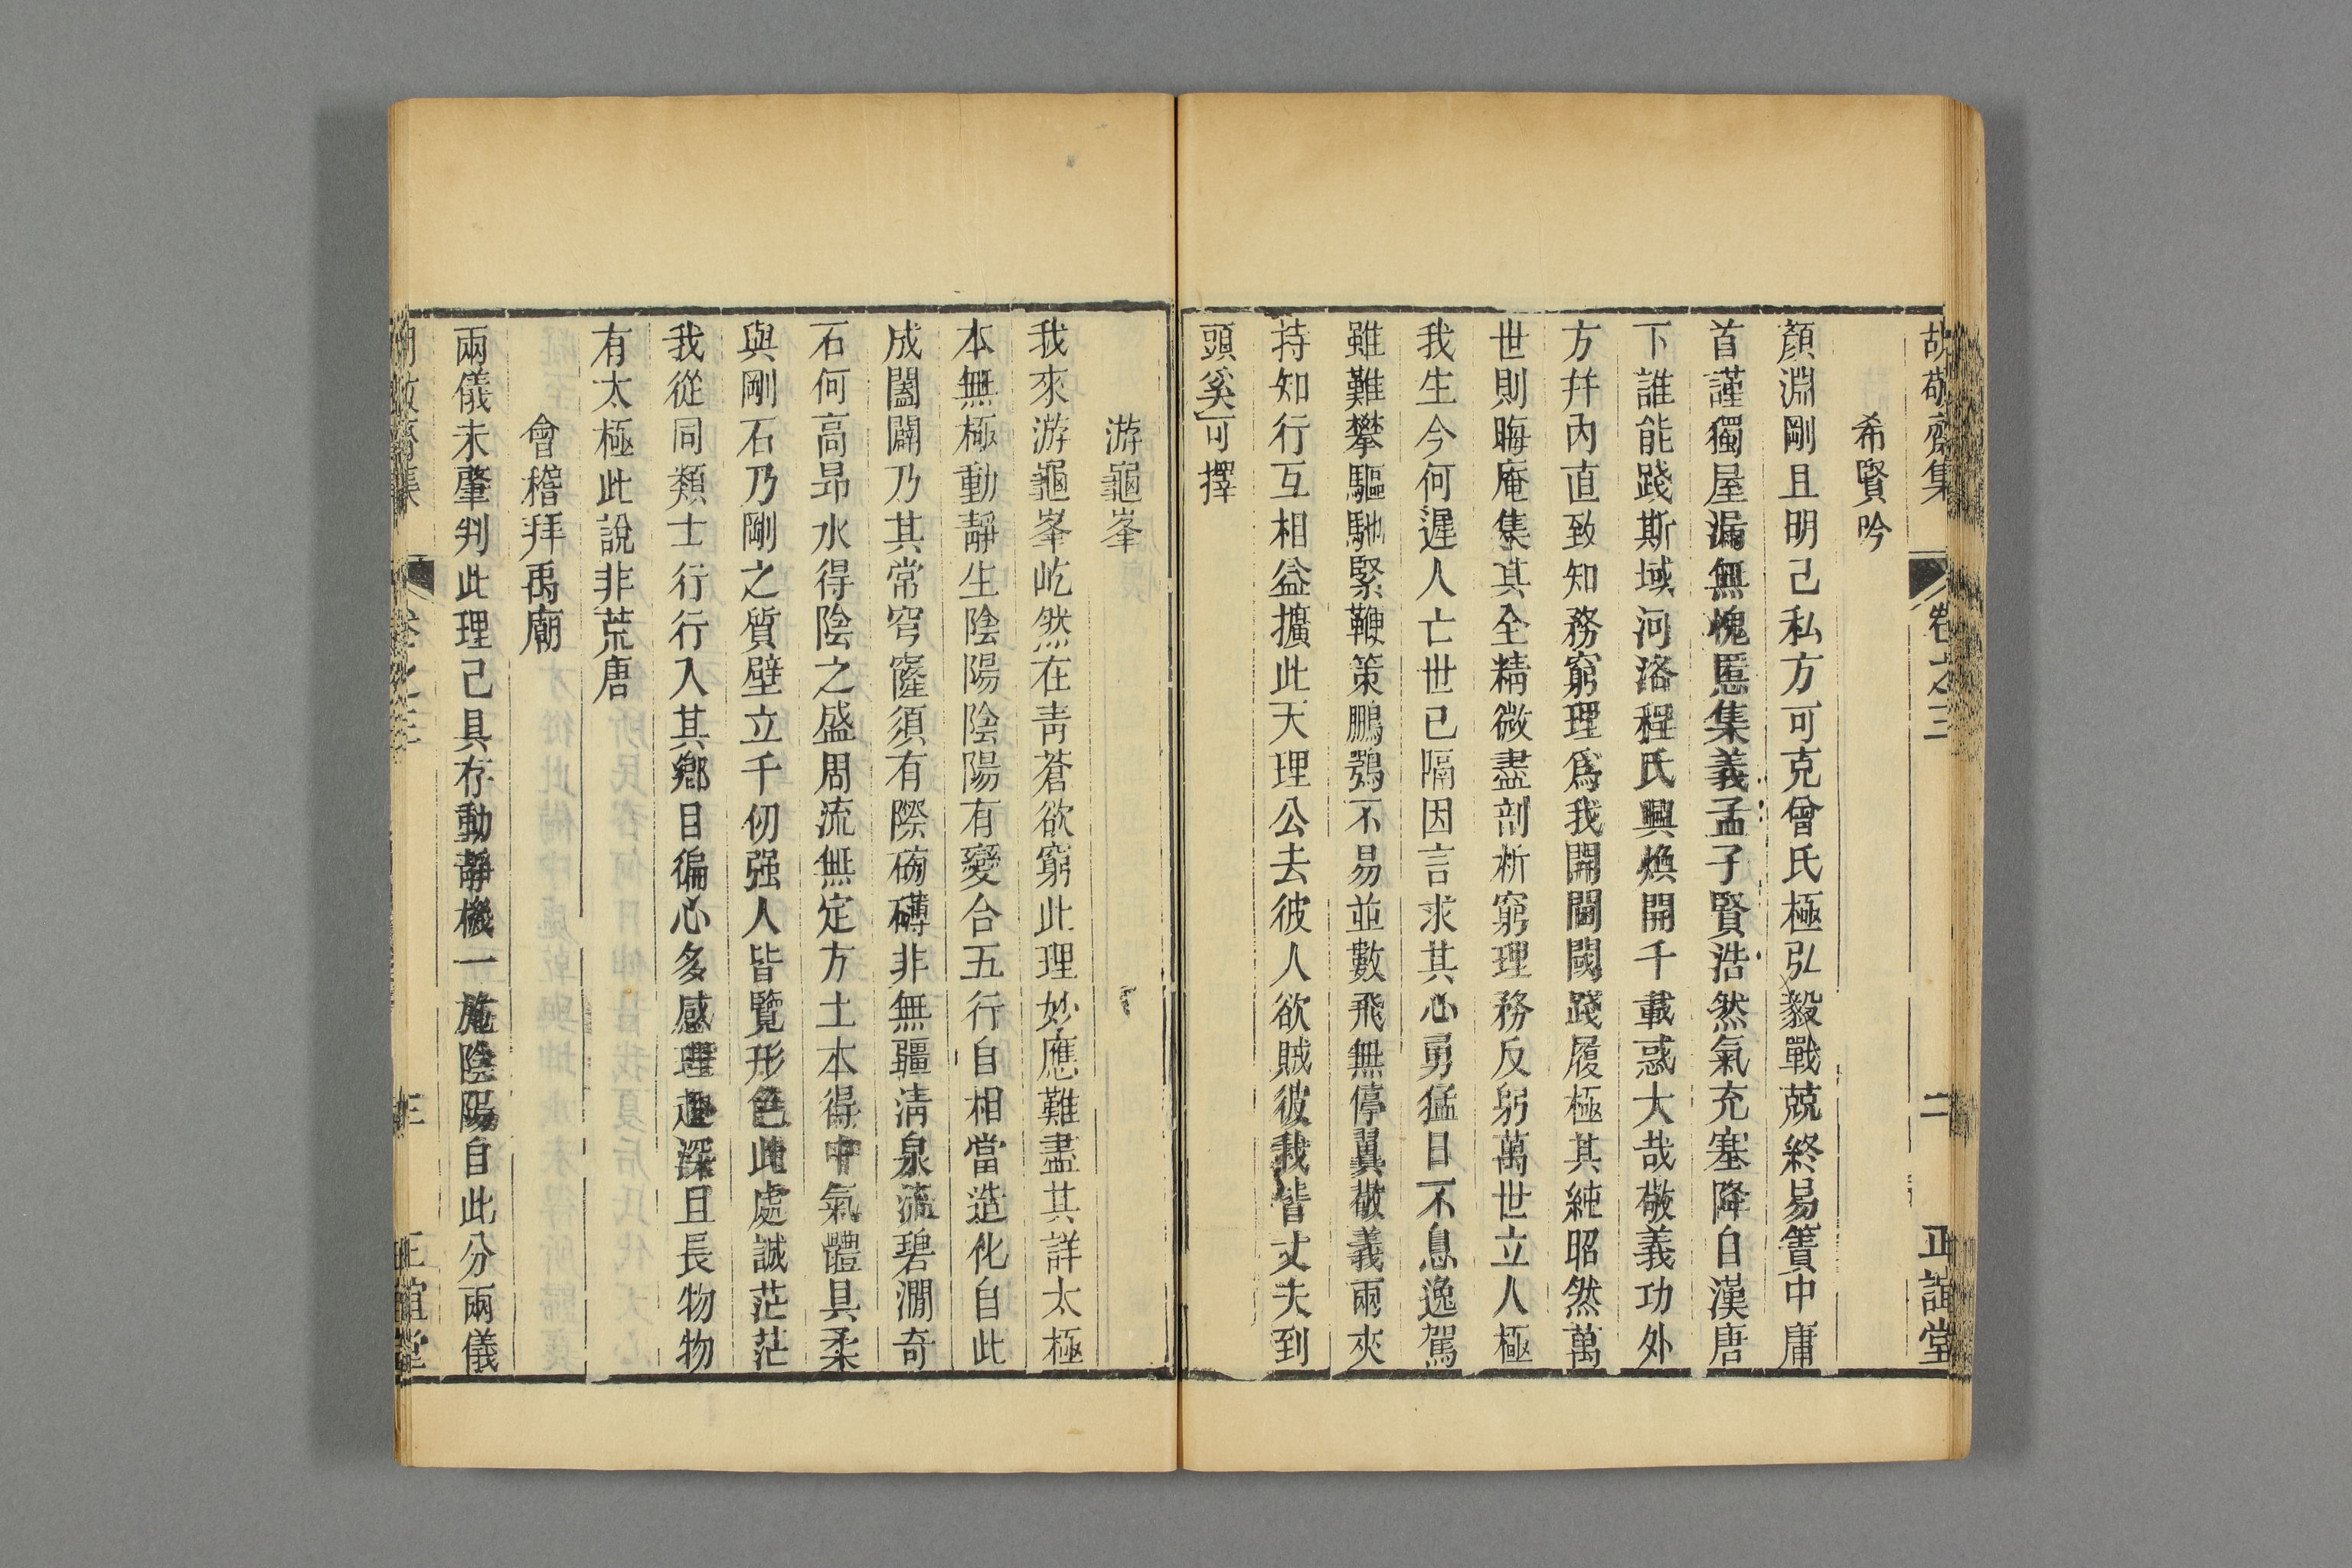 胡敬齋集 卷之三 二 正誼堂
希賢吟
顏淵剛且明己私方可克曾氏極弘毅戰兢終易簀中庸
首謹獨屋漏無愧慝集義孟子賢浩然氣充塞降自漢唐
下誰能踐斯域河洛程氏興煥開千載惑大哉敬義功外
方幷內直致知務窮理爲我開閫閾踐履極其純昭然萬
世則晦庵集其全精微盡剖析窮理務反躬萬世立人極
我生今何遲人亡世已隔因言求其心勇猛日不息逸駕
雖難攀驅馳緊鞭策鵬鶚不易並數飛無停翼敬義兩夾
持知行互相益擴此天理公去彼人欲賊彼我皆丈夫到
頭奚可擇
游龜峯
我來游龜峯屹然在靑蒼欲窮此理妙應難盡其詳太極
本無極動靜生陰陽陰陽有變合五行自相當造化自此
成闔闢乃其常穹窿須有際磅礴非無疆淸泉流碧澗奇
石何高昂水得陰之盛周流無定方土本得中氣體具柔
與剛石乃剛之質壁立千仞强人皆覽形色此處誠茫茫
我從同類士行行入其鄉目徧心多感理趣深且長物物
有太極此說非荒唐
會稽拜禹廟
兩儀未肇判此理已具存動靜機一施陰陽自此分兩儀
胡敬齋集 卷之三 三 正誼堂